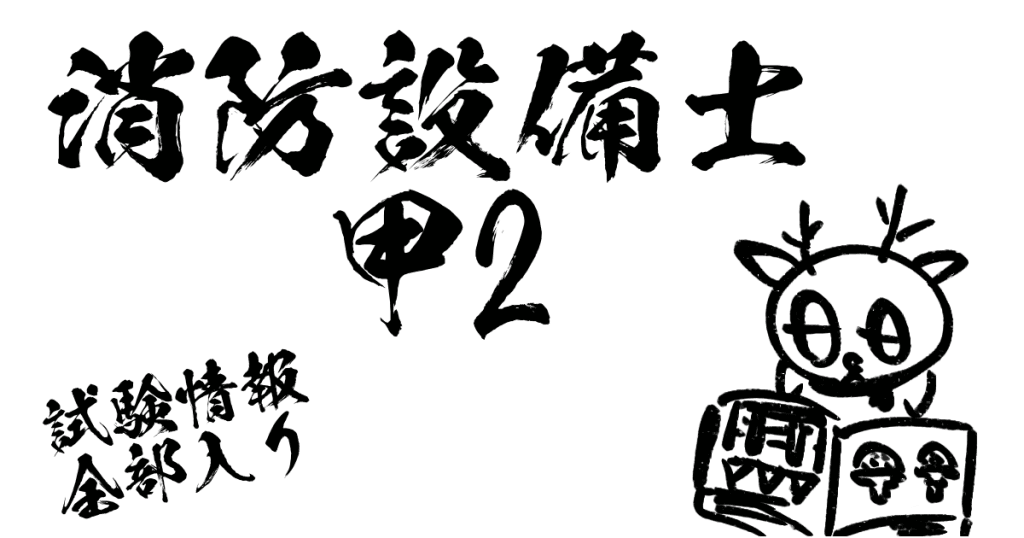 消防設備士
甲2
試験情報
全部入り